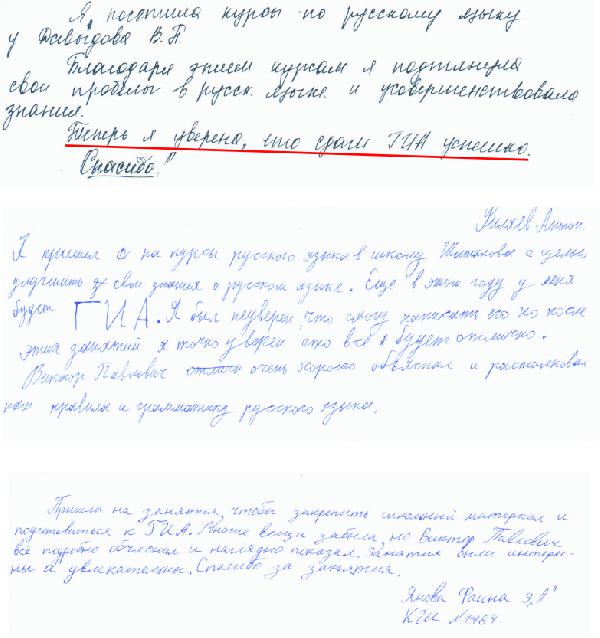 Я, посетила курсы по русскому языку
у Давыдова В.П
Благодаря этим курсам я подтянула
свои пробелы в русск. языке и усовершенствовала
знания.
Теперь я уверена, что сдам ГИА успешно.
Спасибо!"
Антон
Я пришел на курсы русского языка в школу Шаталова с целью
улучшить свои знания о русском языке. Еще в этом году у меня
будет ГИА. Я был неуверен, что смогу написать его но после
этих занятий я точно уверен что всё будет отлично.
Виктор Павлович очень хорошо объяснял и растолковал
нам правила и грамматику русского языка.
Пришла на занятия, чтобы закрепить школьный материал и
подготовиться к ГИА. Многие вещи забыла, но Виктор Павлович
всё подробно объяснял и наглядно показал. Занятия были интерес-
ны и увлекательны. Спасибо за занятия.
Янова Фаина 9"А"